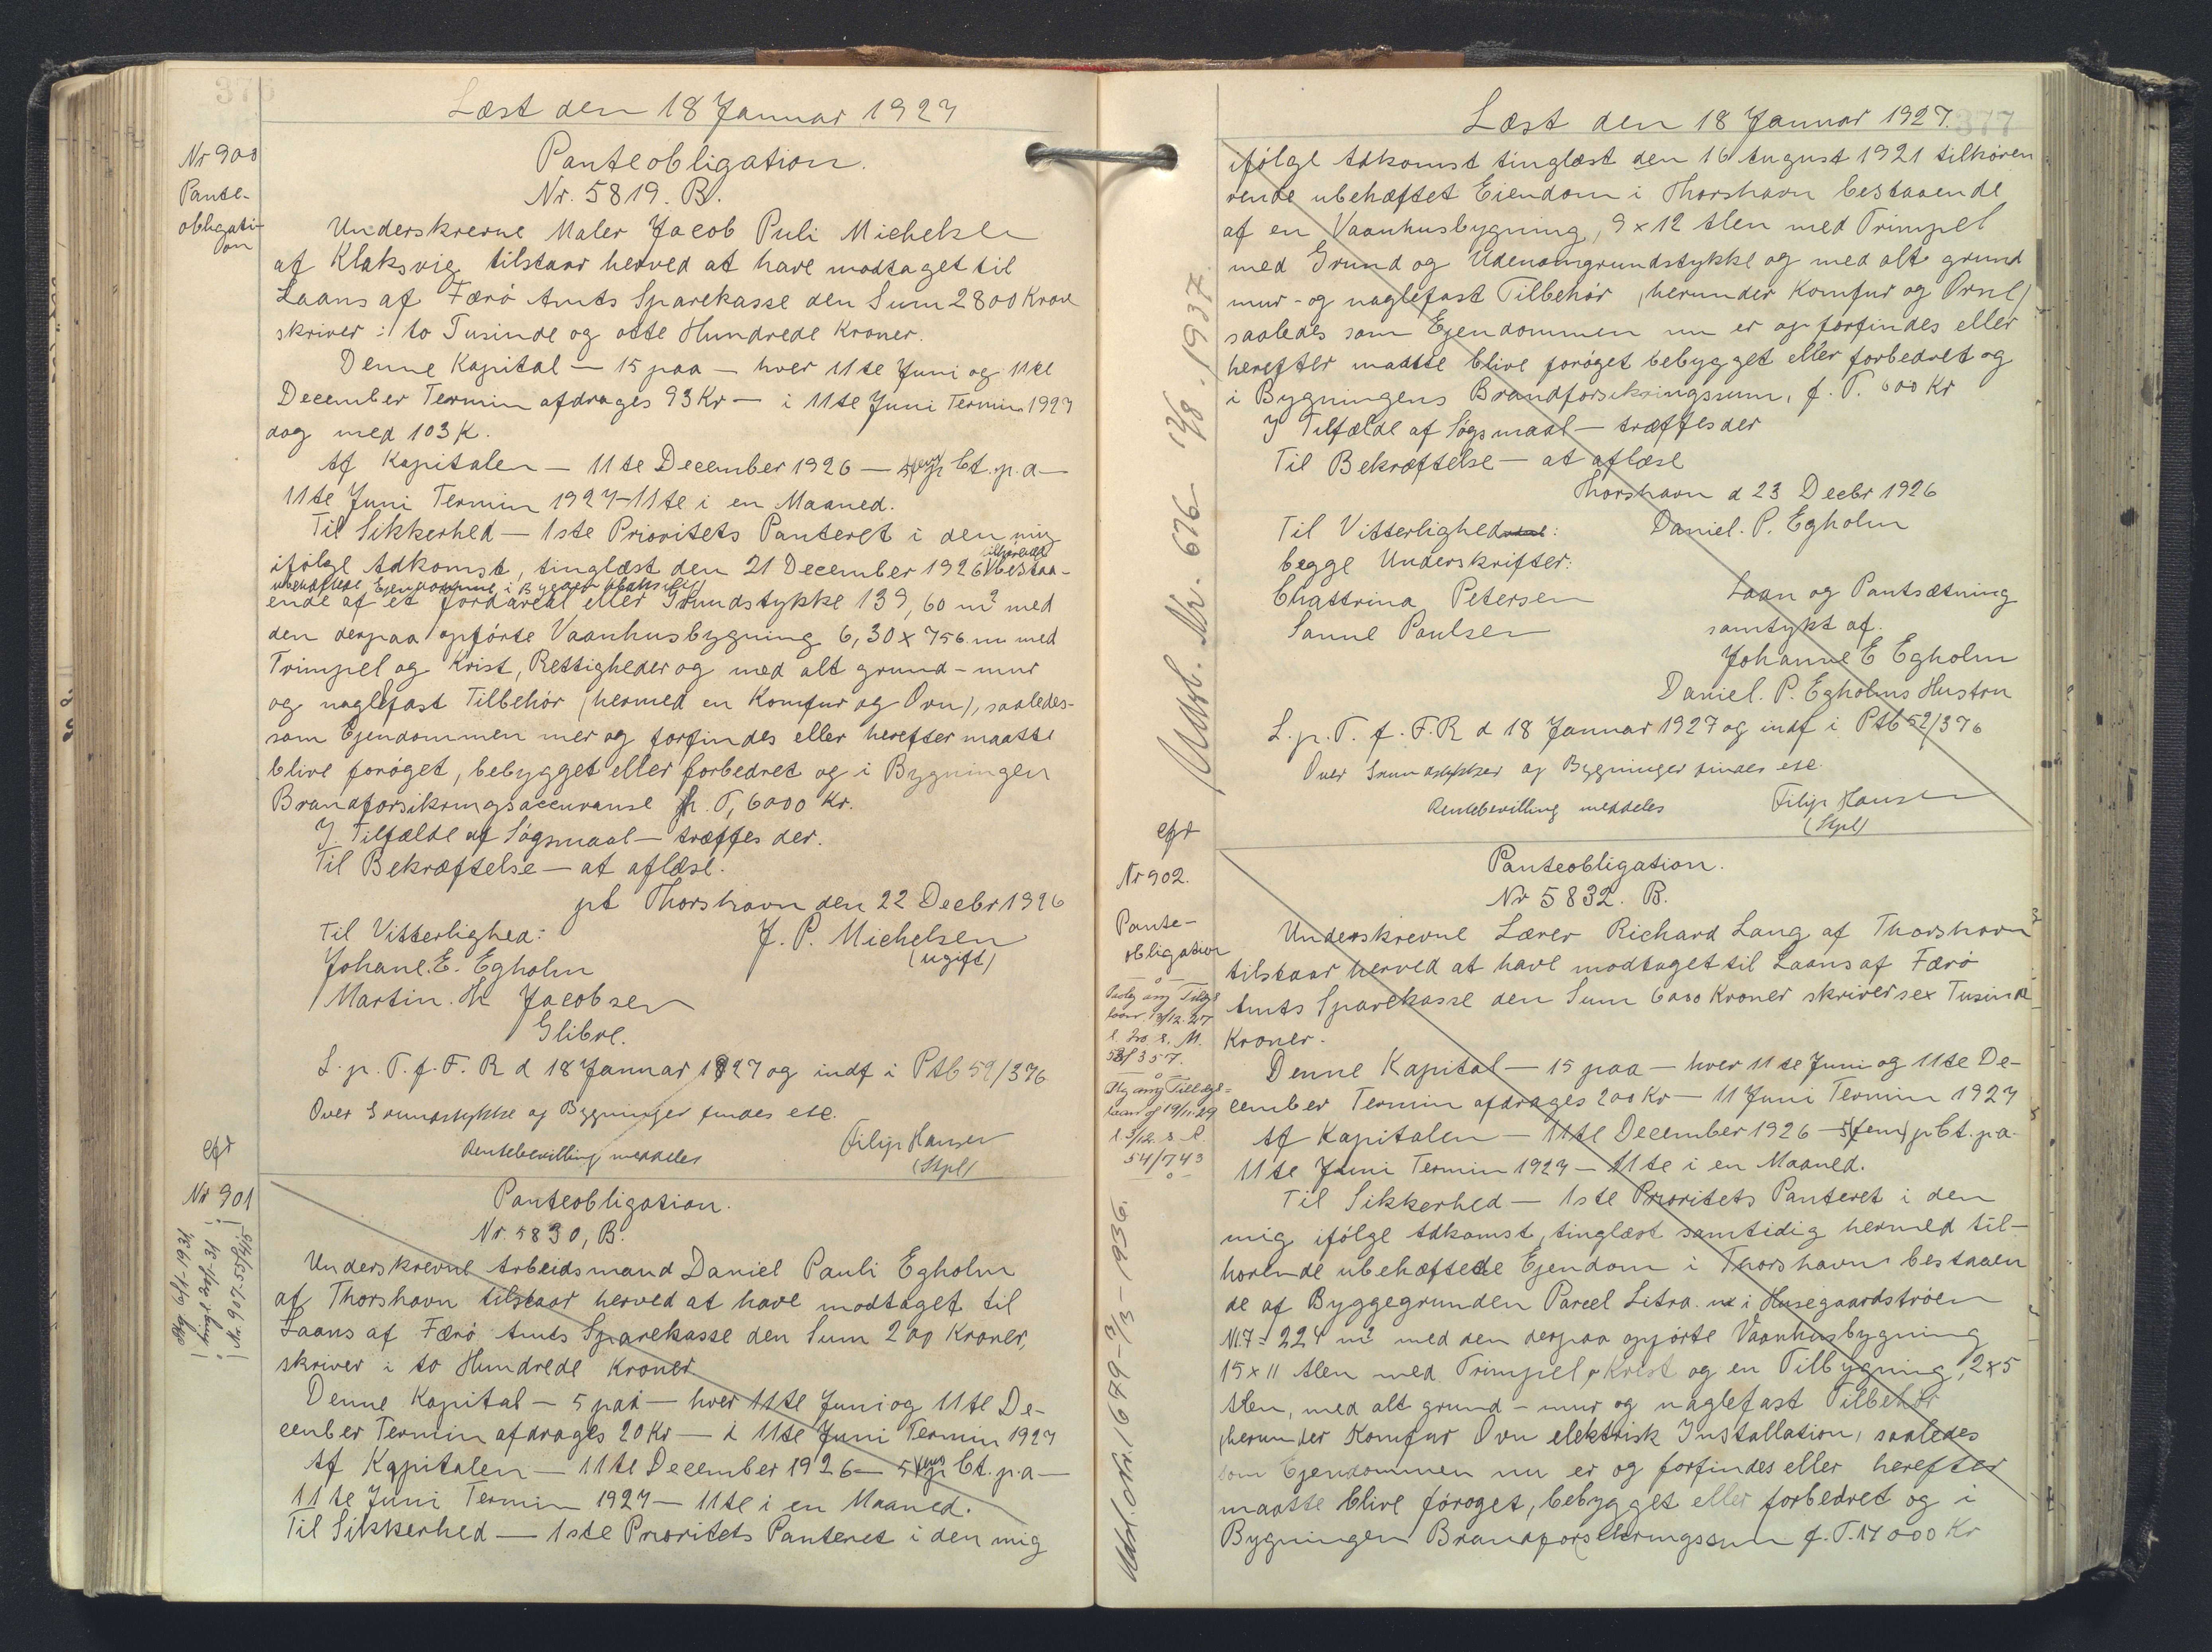 376
Læst den 18 Januar 1927
Nr 900
Pante-
obligati-
on
Panteobligation.
Nr. 5819. B.
Underskrevne Maler Jacob Puli Michelsen
af Klaksvig tilstaar herved at have modtaget til
Laans af Færö Amts Sparekasse den Sum 2800 Krone
skriver: to Tusinde og otte Hundrede Kroner.
Denne Kapital — 15 paa — hver 11te Juni og 11te
December Termin afdrages 93 Kr — i 11te Juni Termin 1927
dog med 103 K.
Af Kapitalen — 11te December 1926 — 5 p Ct. p. a —
11te Juni Termin 1927 — 11te i en Maaned.
Til Sikkerhed — 1ste Prioritets Panteret i den mig
ifölge Adkomst, tinglæst den 21 December 1926 tilhörende bestaa-
ubehæftede Ejendomme i Bygden Klaksvig
ende af et Jordareal eller Grundstykke 139,60 m² med
den derpaa opförte Vaanhusbygning 6,30 x 756 m med
Trimpel og Krist, Rettigheder og med alt grund - mur
og naglefast Tilbehör (hermed en Komfur og Ovn), saaledes-
som Ejendommen nu er og forfindes eller herefter maatte
blive foröget, bebygget eller forbedret og i Bygningen
Brandforsikringsaccurance f. T, 6000 Kr.
I Tilfælde af Sögsmaal — træffes der.
Til Bekræftelse — at aflæse.
pt Thorshavn den 22 Decbr 1926
Til Vitterlighed: J. P. Michelsen
Johane. E. Egholm (ugift)
Martin. H Jacobsen
Glibre.
L. p. T. f. F. R d 18 Januar 1927 og indf i Ptb 52/376
Over Grundstykke og Bygninger findes etc.
Rentebevilling meddeles Filip Hansen
(Stpl)
Nr 901
Panteobligation.
Nr. 5830, B.
Underskrevne Arbeidsmand Daniel Pauli Egholm
af Thorshavn tilstaar herved at have modtaget til
Laans af Færö Amts Sparekasse den Sum 200 Kroner,
skriver i to Hundrede Kroner
Denne Kapital — 5 paa — hver 11te Juni og 11te De-
cember Termin afdrages 20 Kr — i 11te Juni Termin 1927
Af Kapitalen — 11te December 1926 — 5 p Ct. p. a —
11te Juni Termin 1927 — 11te i en Maaned.
Til Sikkerhed — 1ste Prioritets Panteret i den mig
377
Læst den 18 Januar 1927.
ifölge Adkomst tinglæst den 16 August 1921 tilhören
rende ubehæftet Eiendom i Thorshavn bestaaende
af en Vaanhusbygning, 9 x 12 Alen med Trimpel
med Grund og Udenomgrundstykke og med alt grund
mur- og naglefast Tilbehör (herunder Komfur og Ovne)
saaledes som Ejendommen nu er og forfindes eller
herefter maatte blive foröget bebygget eller forbedret og
i Bygningens Brandforsikringssum, f. T. 600 Kr
I Tilfælde af Sögsmaal — træffes der
Til Bekræftelse — at aflæse
Thorshavn d 23 Decbr 1926
Til Vitterlighed: Daniel. P. Egholm
begge Underskrifter:
Chattrina Petersen Laan og Pantsætning
Sanne Poulsen samtykt af.
Johanne E Egholm
Daniel. P. Egholms Hustru
L. p. T. f. F. R d 18 Januar 1927 og indf i Ptb 52/376
Over Grundstykker og Bygninger findes etc
Rentebevilling meddeles Filip Hansen
(Stpl)
Udsl. Nr. 676 - 12/8. 1937.
Nr 902.
Pante-
obligation
laan 13/12. 27
52/357.
laan af 19/11. 29
l. 3/12. s. P.
54/743
Udsl. Nr. 1679 - 3/3 - 1936.
Panteobligation.
Nr 5832. B.
Underskrevne Lærer Richard Lang af Thorshavn
tilstaar herved at have modtaget til Laans af Færö
Amts Sparekasse den Sum 6000 Kroner skriver sex Tusinde
Kroner.
Denne Kapital — 15 paa — hver 11te Juni og 11te De-
cember Termin afdrages 200 Kr — 11 Juni Termin 1927
Af Kapitalen — 11te December 1926 — 5 (fem) p Ct. p. a.
11te Juni Termin 1927 — 11te i en Maaned.
Til Sikkerhed — 1ste Prioritets Panteret i den
mig ifölge Adkomst, tinglæst samtidig hermed til-
hörende ubehæftede Ejendom i Thorshavn bestaaen
de af Byggegrunden Parcel Litra. i Husegaardströen
M. 7 = 224 m² med den derpaa opförte Vaanhusbygning
15 x 11 Alen med Trimpel, Krist og en Tilbygning, 2x5
Alen, med alt grund - mur og naglefast Tilbehör
(herunder Komfur Ovn elektrisk Installation, saaledes
som Ejendommen nu er og forfindes eller herefter
maatte blive föroget, bebygget eller forbedret og i
Bygningen Brandforsikringssum f. T. 17000 Kr